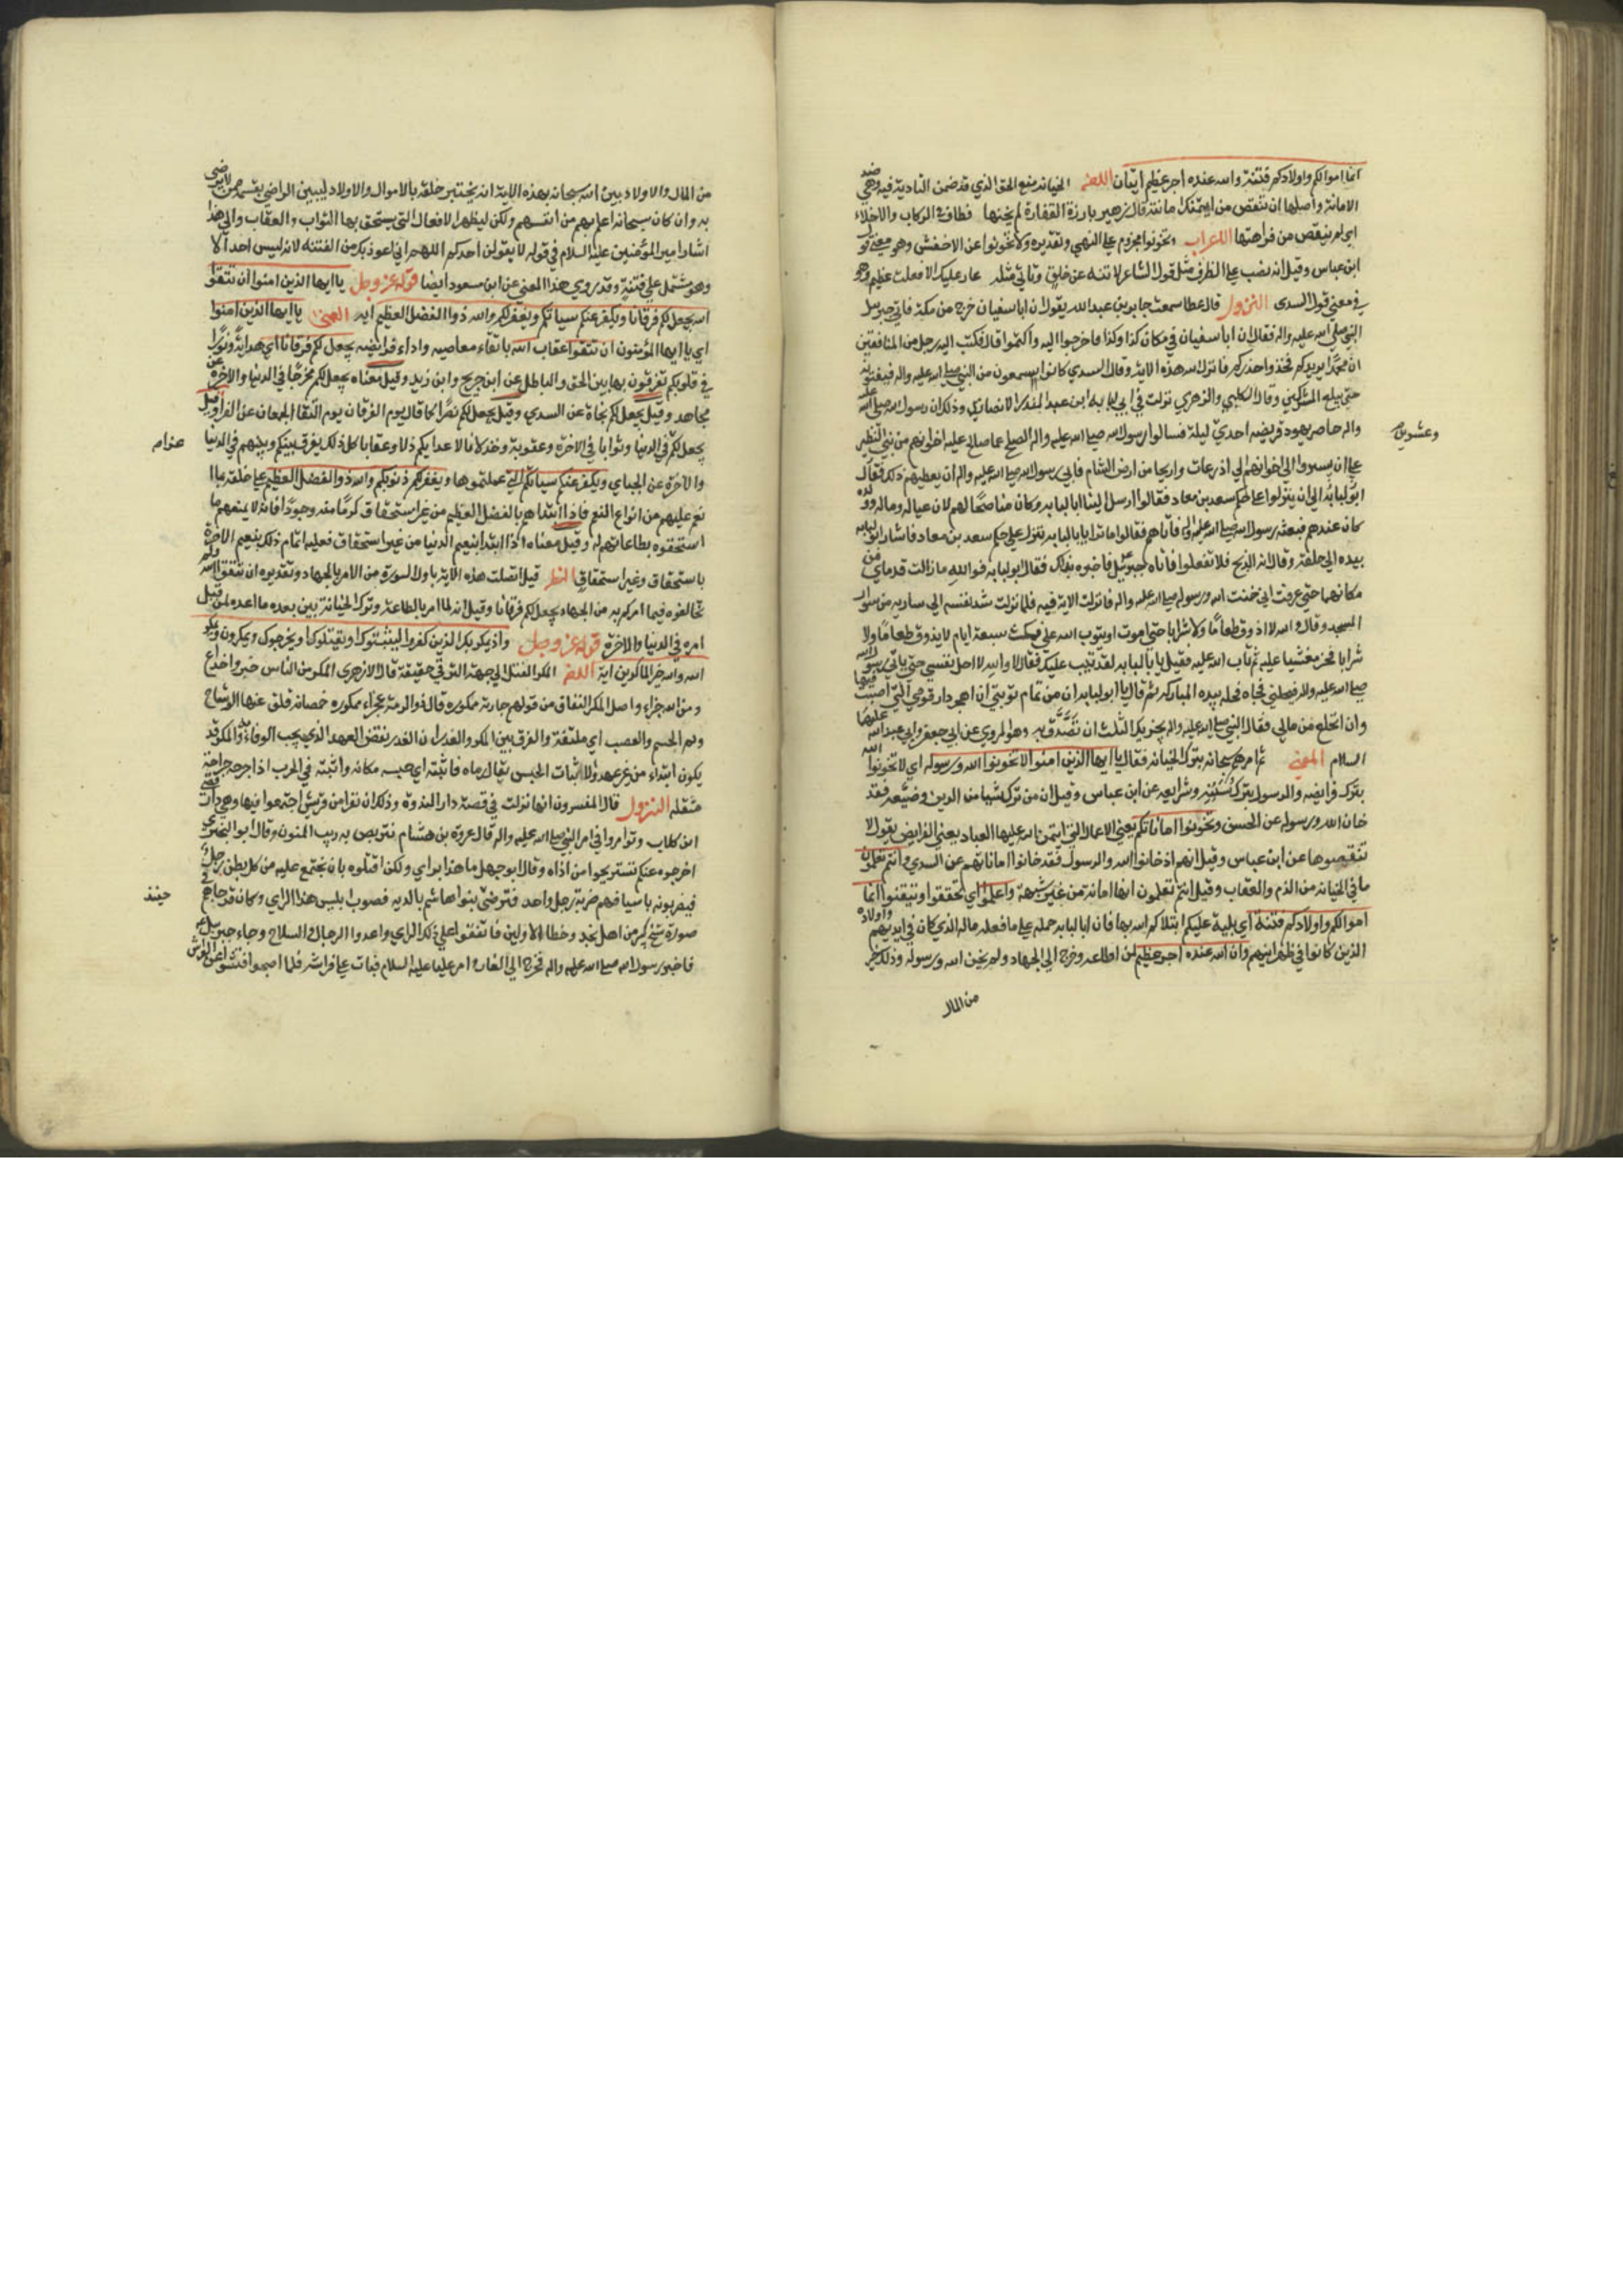 انما اموالكم واولادكم فتنة والله عنده اجر عظيم ايتان اللغة الخيانة منع الحق الذي قد ضمن التادية فيه وهي ضد
الامانة واصلها ان تنقص من ائتمنك امانته قال زهير بارزة الفقارة لم يخنها قطاف في الركاب ولا خلاء
اي لم ينقص من فراهتها الاعراب وتخونوا مجزوم على النهي وتقديره ولا تخونوا عن الاخفش وهو معنى قول
ابن عباس وقيل انه نصب على الظرف مثل قول الشاعر لا تنه عن خلق وتاتي مثله عار عليك اذا فعلت عظيم وهو
في معنى قول السدى النزول قال عطا سمعت جابر بن عبد الله يقول ان ابا سفيان خرج من مكة فاتى جبرئيل
النبي صلى الله عليه واله فقال ان ابا سفيان في مكان كذا وكذا فاخرجوا اليه واكتموا قال فكتب اليه رجل من المنافقين
ان محمدا يريدكم فخذوا حذركم فانزل الله هذه الاية وقال السدي كانوا يسمعون من النبي صلى الله عليه واله فيفشونه
حتى يبلغ المشركين وقال الكلبي والزهري نزلت في ابي لبابة ابن عبد المنذر الانصاري وذلك ان رسول الله صلى الله عليه
واله حاصر يهود قريضه احدي ليلة فسالوا رسول الله صلى الله عليه واله الصلح على ما صالح عليه اخوانهم من بني النظير
وعشرين
على ان يسيروا الى اخوانهم الي اذرعات واريحا من ارض الشام فابى رسول الله صلى الله عليه واله ان يعطيهم ذلك فقال
ابو لبابة الا ان ينزلوا على حكم سعد بن معاد فقالوا ارسل الينا ابا لبابه وكان مناصحا لهم لان عياله وماله وولده
كان عندهم فبعثه رسول الله صلى الله عليه واله فاتاهم فقالوا ما ترا يا ابا لبابه ننزل علي حكم سعد بن معاد فاشار ابو لبابه
بيده الى حلقه وقال انه الذبح فلا تفعلوا فاتاه جبرئيل فاخبره بذلك فقال ابو لبابه فوالله ما زالت قدماي من
مكانهما حتي عرفت اني خنت الله ورسوله صلى الله عليه واله فانزلت الاية فيه فلما نزلت شد نفسه الي ساريه من سوار
المسجد وقال والله لا اذوق طعاما ولا شرابا حتى اموت او يتوب الله علي فمكث سبعة ايام لا يذوق طعاما ولا
شرابا فخر مغشيا عليه ثم تاب الله عليه فقيل يا ابا لبابه لقد تيب عليك فقال لا والله لا احل نفسي حتى ياتي رسول الله
صلى الله عليه واله فيحلني فجاه فحله بيده المباركه ثم قال يا ابو لبابه ان من تمام توبتي ان اهجر دار قومي التي اصبت فيها
وان انخلع من مالي فقال النبي صلى الله عليه واله يجزيك الثلث ان تصدق به وهو المروي عن ابي جعفر وابي عبد الله عليهما
السلام المعنى ثم امرهم سبحانه بترك الخيانه فقال يا ايها الذين امنوا لا تخونوا الله ورسوله اي لا تخونوا الله
بترك فرايضه والرسول بترك سننه وشرايعه عن ابن عباس وقيل ان من ترك شيا من الدين وضيعه فقد
خان الله ورسوله عن الحسن وتخونوا اماناتكم يعني الاعمال التي ايتمن الله عليها العباد يعني الفرايض يقول لا
تنقصوها عن ابن عباس وقيل انهم اذ خانوا الله والرسول فقد خانوا اماناتهم عن السدي وانتم تعلمون
ما في الخيانه من الذم والعقاب وقيل انتم تعلمون انها امانة من غير شبهة واعلموا اي تحققوا وتيقنوا انما
اموالكم واولادكم فتنة اي بلية عليكم ابتلاكم الله بها فان ابا لبابه حمله على ما فعله ماله الذي كان في ايديهم واولاده
الذين كانوا في ظهرانيهم وان الله عنده اجر عظيم لمن اطاعه وخرج الى الجهاد ولم يخن الله ورسوله وذلك خير
من المال
من المال والاولاد بين الله سبحانه بهذه الاية انه يختبر خلقه بالاموال والاولاد ليبين الراضي بقسمه ممن لا يرضى
به وان كان سبحانه اعلم بهم من انفسهم ولكن ليظهر الافعال التي يستحق بها الثواب والعقاب والى هذا
اشار امير المؤمنين عليه السلام في قوله لا يقولن احدكم اللهم اني اعوذ بك من الفتنه لانه ليس احد الا
وهو مشتمل على فتنة وقد روي هذا المعنى عن ابن مسعود ايضا قوله عز وجل يا ايها الذين امنوا ان تتقوا
الله يجعل لكم فرقانا ويكفر عنكم سياتكم ويغفر لكم والله ذوا الفضل العظيم ايه المعنى يا ايها الذين امنوا
اي يا ايها المؤمنون ان تتقوا عقاب الله باتقاء معاصيه واداء فرايضه يجعل لكم فرقانا اي هداية ونورا
في قلوبكم تفرقون بها بين الحق والباطل عن ابن جريح وابن زيد وقيل معناه يجعل لكم مخرجا في الدنيا والاخرة عن
مجاهد وقيل يجعل لكم نجاة عن السدي وقيل يجعل لكم نصرا كما قال يوم الفرقان يوم التقا الجمعان عن الفرا وقيل
يجعل لكم في الدنيا وثوابا في الاخرة وعقوبة وخذلانا لاعدايكم ذلا وعقابا كل ذلك يفرق بينكم وبينهم في الدنيا
عزام
والاخرة عن الجباي ويكفر عنكم سياتكم التي عملتموها ويغفر لكم ذنوبكم والله ذو الفضل العظيم على خلقه بما
نعم عليهم من انواع النعم فاذا ابتداهم بالفضل العظيم من غير استحقاق كرما منه وجودا فانه لا يمنعهم ما
استحقوه بطاعاتهم له وقيل معناه اذا ابتدا بنعيم الدنيا من غير استحقاق فعليه اتمام ذلك بنعيم الاخرة
باستحقاق وغير استحقاق النظر قيل اتصلت هذه الاية باول السورة من الامر بالجهاد وتقديره ان تتقوا الله ولم
تخالفوه فيما امركم به من الجهاد يجعل لكم فرقانا وقيل انه لما امر بالطاعة وترك الخيانة بين بعده ما اعده لمن قبل
امره في الدنيا والاخرة قوله عز وجل واذ يمكر بك الذين كفروا ليثبتوك او يقتلوك او يخرجوك ويمكرون ويمكر
الله والله خير الماكرين اية اللغة المكر الفتل الي جهة الشر في خفية قال الازهرى المكر من الناس خب وخداع
ومن الله جزاء واصل المكر التفاف من قولهم جارية ممكوره قال ذو الرمة عجزاء ممكوره خمصانة قلق عنها الوشاح
وتم الجسم والعصب اي ملتفة والفرق بين المكر والغدر ان الغدر نقض العهد الذي يجب الوفاء به والمكر قد
يكون ابتداء من غير عهد والاثبات الحبس يقال رماه فاثبته اي حبسه مكانه واثبته في الحرب اذا جرحه جراحة
مثقله النزول قال المفسرون انها نزلت في قصة دار الندوة وذلك ان نفرا من قريش اجتمعوا فيها وهي دار قصي
ابن كلاب وتوامروا في امر النبي صلى الله عليه واله قال عروة بن هشام نتربص به ريب المنون وقال ابو البختري
اخرجوه عنكم تستريحوا من اذاه وقال ابو جهل ما هذا براي ولكن اقتلوه بان يجتمع عليه من كل بطن رجل
فيضربونه باسيافهم ضربة رجل واحد فترضى بنوا هاشم بالديه فصوب ابليس هذا الراي وكان قد جاهم في
حينئذ
صورة شيخ كبير من اهل نجد وخطا الاولين فاتفقوا على ذلك الراي واعدوا الرجال والسلاح وجاء جبرئيل
فاخبر رسول الله صلى الله عليه واله فخرج الى الغار وامر عليا عليه السلام فبات على فراشه فلما اصبحوا فتشوا عن الفراش